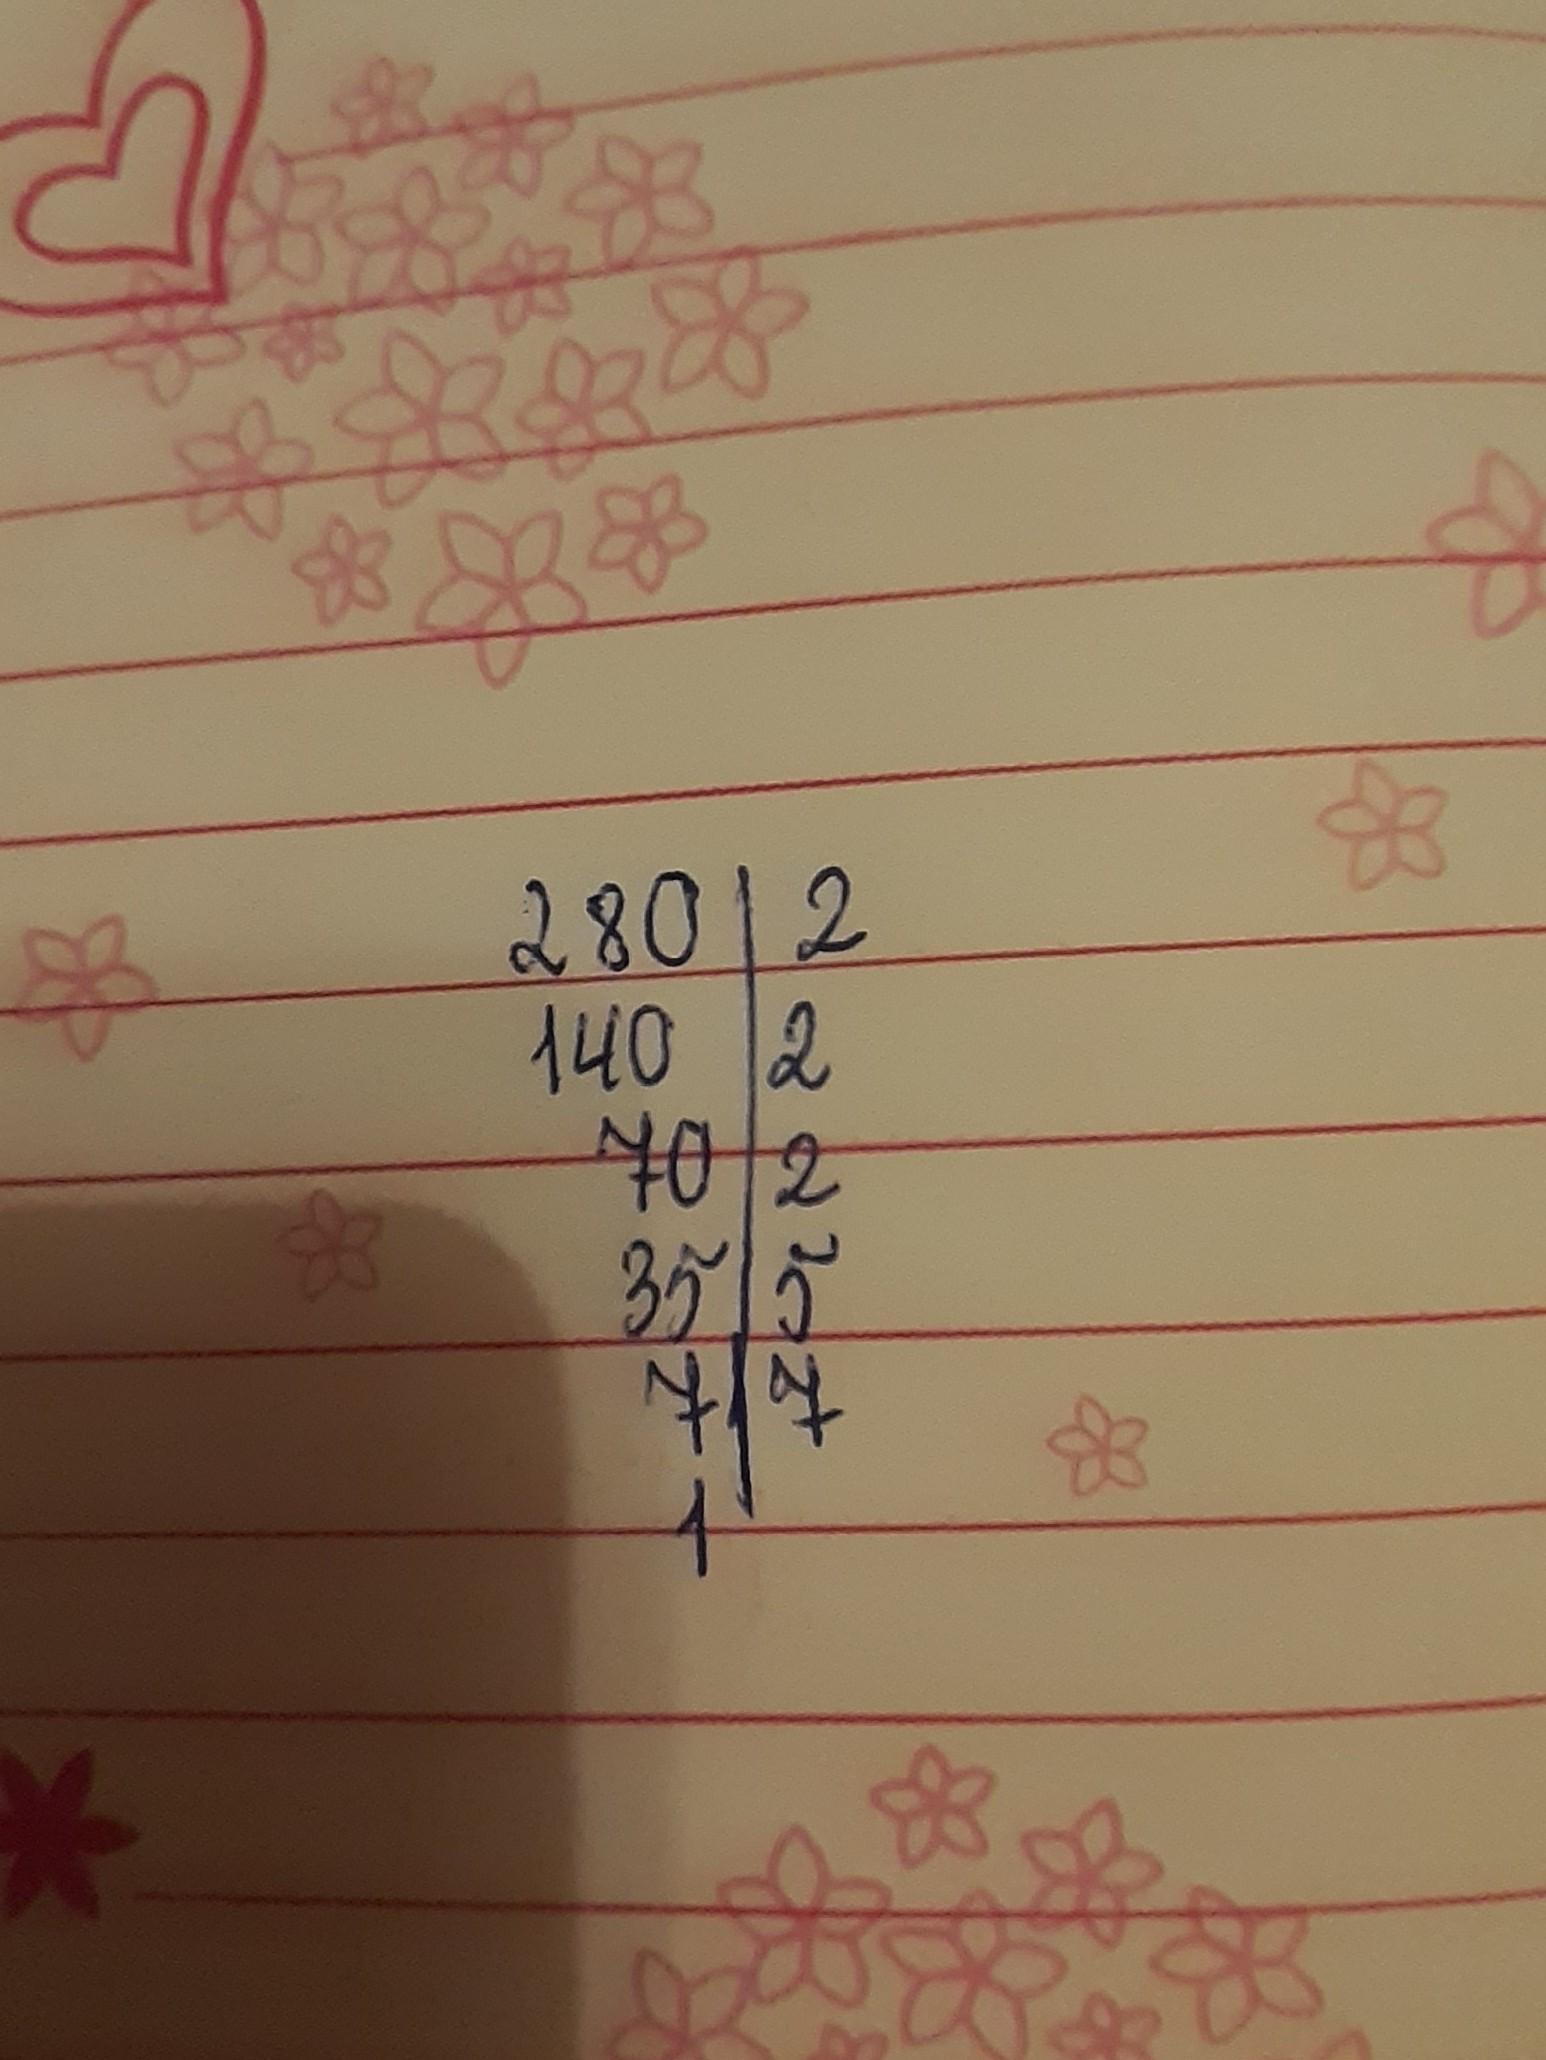 280 | 2
140 | 2
70 | 2
35 | 5
7 | 7
1